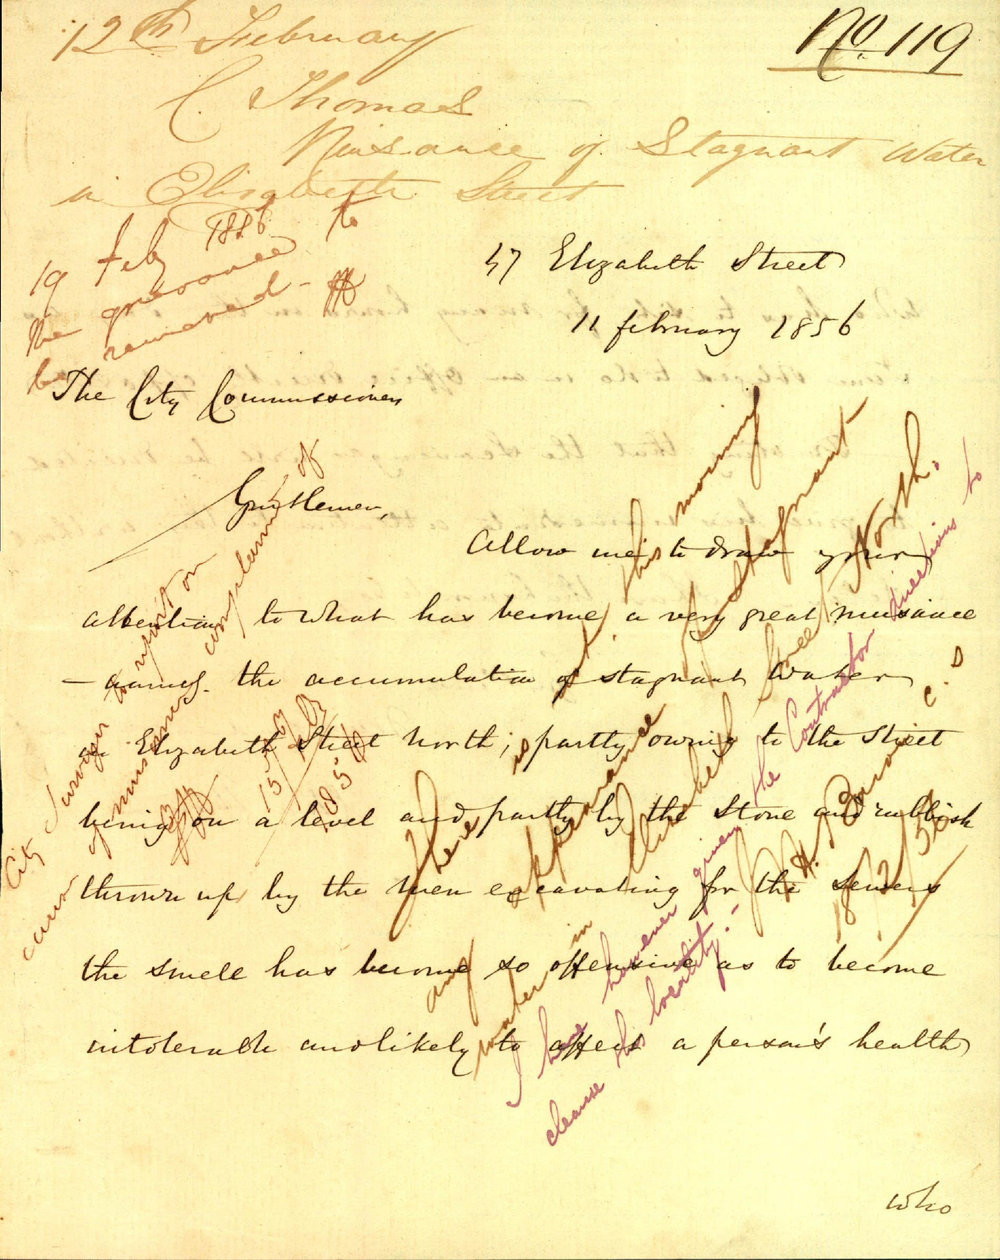 12th February
No. 119
C. Thomas
Nuisance of Stagnant Water
in Elizabeth Street
19 Feby 1856
the grievance to
be removed -
47 Elizabeth Street
11 february 1856
The City Commissioners
Gentlemen,
Allow me to draw your
attention to what has become a very great nuisance
- namely the accumulation of stagnant Water
in Elizabeth Street North; partly owing to the Street
being on a level and partly by the Stone and rubbish
thrown up by the men excavating for the Sewers
the smell has become so offensive as to become
intolerable and likely to affect a person's health
who
City Surveyor to report on
cause of nuisance complained of
15 Feby
1856
There is not this morning
any appearance of stagnant
water in Elizabeth Street North.
I have however given the Contractor directions to
cleanse this locality. -
C.S
18/2/56